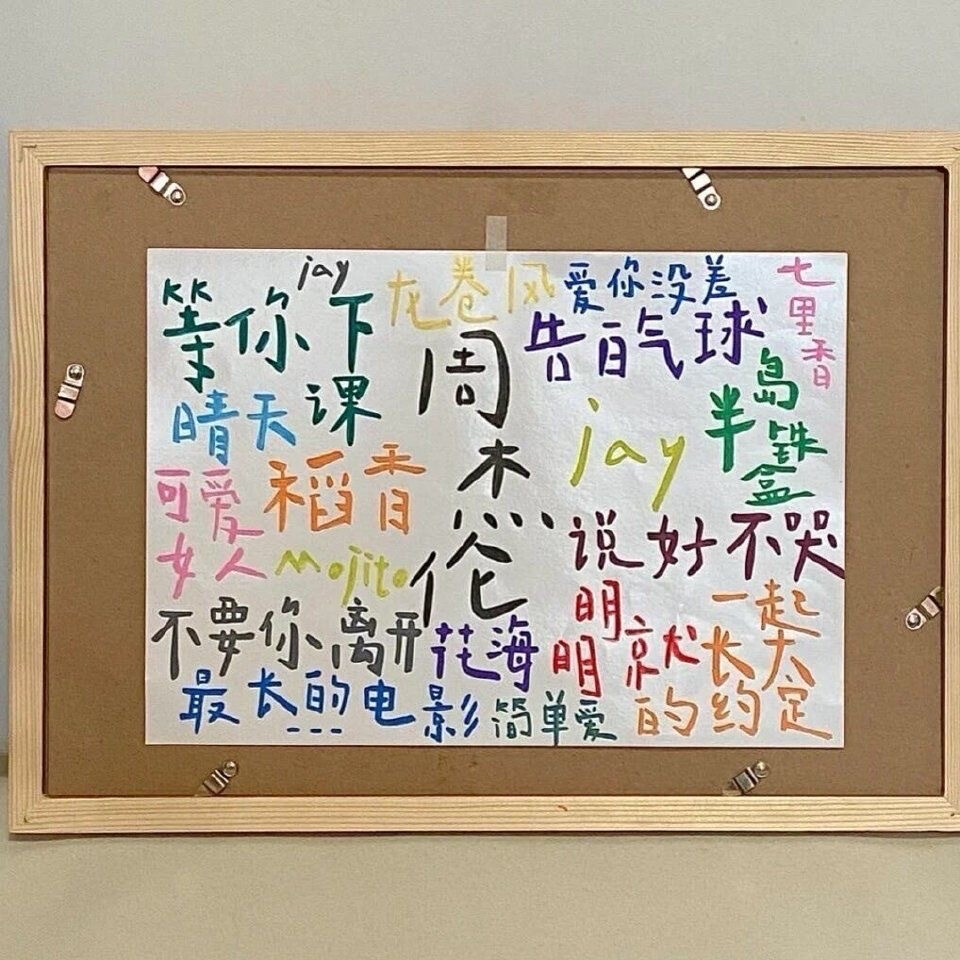 jay
等你下课
龙卷风
爱你没差
七里香
告白气球
周杰伦
晴天
jay
半岛铁盒
可爱女人
稻香
Mojito
说好不哭
不要你离开
花海
明明就
一起长大的约定
最长的电影
简单爱